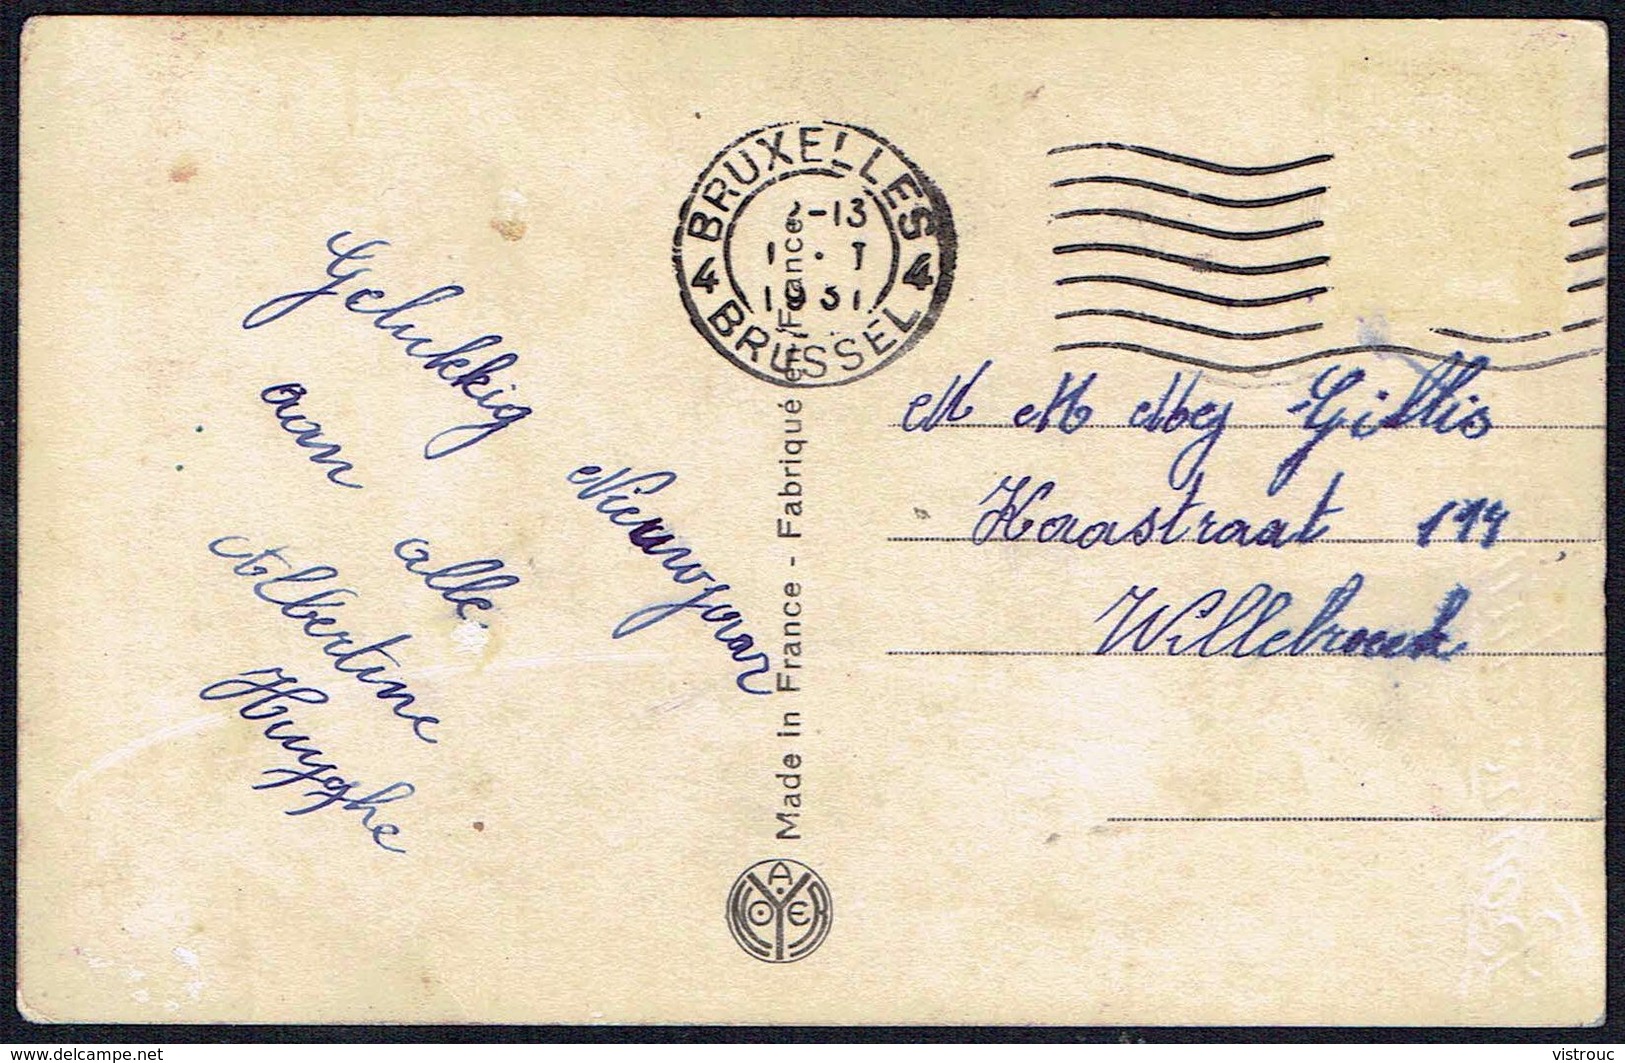 Gelukkig Nieuwjaar
aan alle
Albertine
Huyghe
Made in France - Fabriqué en France
BRUXELLES
-13
1 . I
1951
4 4
BRUSSEL
M M Mej Gillis
Kaastraat
Willebroeck
A
O E
www.delcampe.net
vistrouc